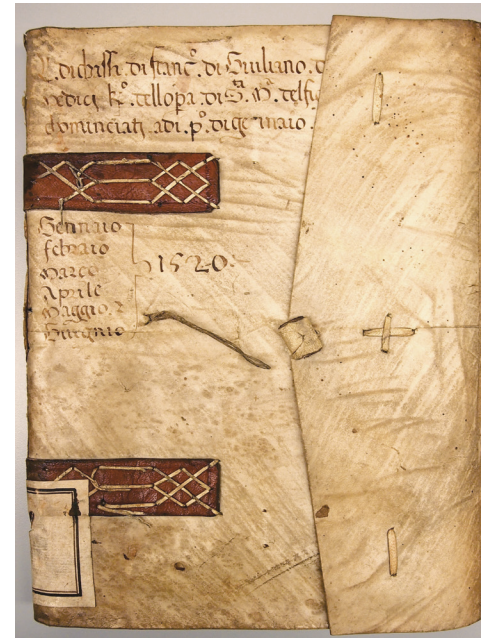 di franc.º di Giuliano. d
Medici k.º dellopa di S.ª M.ª del fi
chominciato adi .p.º di gennaio.
Gennaio
febraio
Marzo
Aprile
Maggio
Giugnio
1520